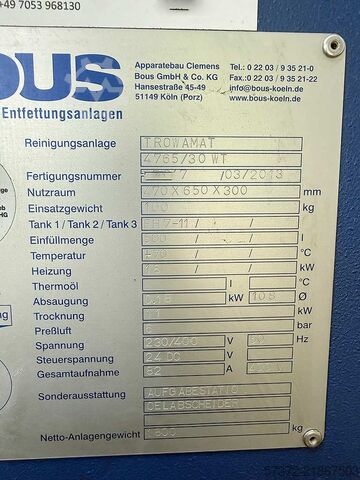 +49 7053 968130
BOUS
Entfettungsanlagen
Apparatebau Clemens
Bous GmbH & Co. KG
Hansestraße 45-49
51149 Köln (Porz)
Tel.: 0 22 03 / 9 35 21-0
Fax.: 0 22 03 / 9 35 21-22
www.bous-koeln.de
Reinigungsanlage TROWAMAT
4765/30 WT
Fertigungsnummer 7 /03/2013
Nutzraum 470 X 650 X 300 mm
Einsatzgewicht 100 kg
Tank 1 / Tank 2 / Tank 3 / /
Einfüllmenge / / l
Temperatur / / °C
Heizung 18 / / kW
Thermoöl l °C
Absaugung 0,18 kW 108 Ø
Trocknung kW
Preßluft 6 bar
Spannung 230/400 V 50 Hz
Steuerspannung 24 DC V
Gesamtaufnahme 62 A
Sonderausstattung AUFGABESTATIO
OELABSCHEIDER
Netto-Anlagengewicht kg